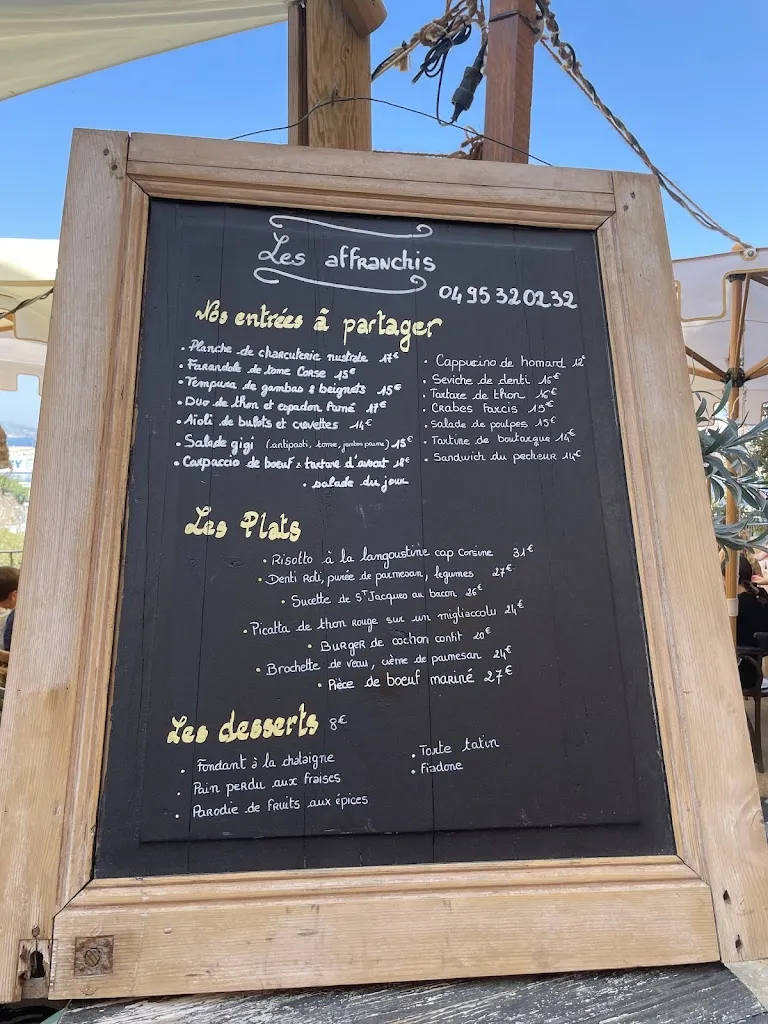 Les affranchis
04 95 32 02 32
Nos entrées à partager
• Planche de charcuterie nustrale 17€
• Farandole de tome Corse 15€
• Tempura de gambas & beignets 15€
• Duo de thon et espadon fumé 17€
• Aïoli de bulots et crevettes 14€
• Salade gigi (antipasti, tome, jambon paume) 18€
• Carpaccio de boeuf & tartare d'avocat 18€
• salade du jour
• Cappucino de homard 12€
• Seviche de denti 16€
• Tartare de thon 16€
• Crabes Farcis 15€
• Salade de poulpes 15€
• Tartine de boutargue 14€
• Sandwich du pecheur 14€
Les Plats
• Risotto à la langoustine cap Corsine 31€
• Denti Roti, purée de parmesan, legumes 27€
• Sucette de ST Jacques au bacon 26€
• Picatta de thon Rouge sur un migliacciu 24€
• Burger de cochon confit 20€
• Brochette de veau, crème de parmesan 24€
• Pièce de boeuf mariné 27€
Les desserts 8€
• Fondant à la chataigne
• Pain perdu aux fraises
• Parodie de Fruits aux épices
• Tarte tatin
• Fiadone